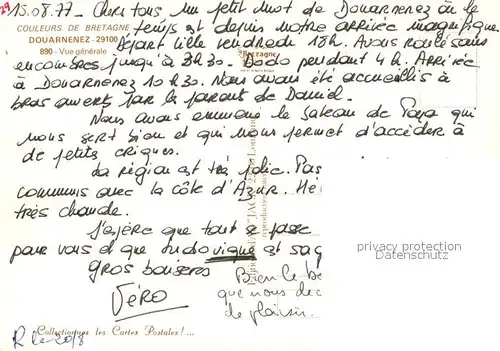 29
15.08.77 - Chers tous, un petit mot de Douarnenez où le
COULEURS DE BRETAGNE
temps est depuis notre arrivée magnifique.
DOUARNENEZ - 29100
890 - Vue générale
Départ Lille vendredi 18h. Avons roulé sans
encombres jusqu'à 3h30. Dodo pendant 4h. Arrivée
à Douarnenez 10h30. Nous avons été accueillis à
bras ouverts par les parents de Daniel.
Nous avons emmené le bateau de Papa qui
nous sert bien et qui nous permet d'accéder à
de petites criques.
La région est très jolie. Pas
communs avec la côte d'Azur. Mê
très chaude.
J'espère que tout se passe
pour vous et que Ludovique est sag
gros baisers
Véro
Bien le be
que nous dec
de plaisir.
privacy protection
DELCAMPE.NET
Collectionnez les Cartes Postales !...
R le 20/8